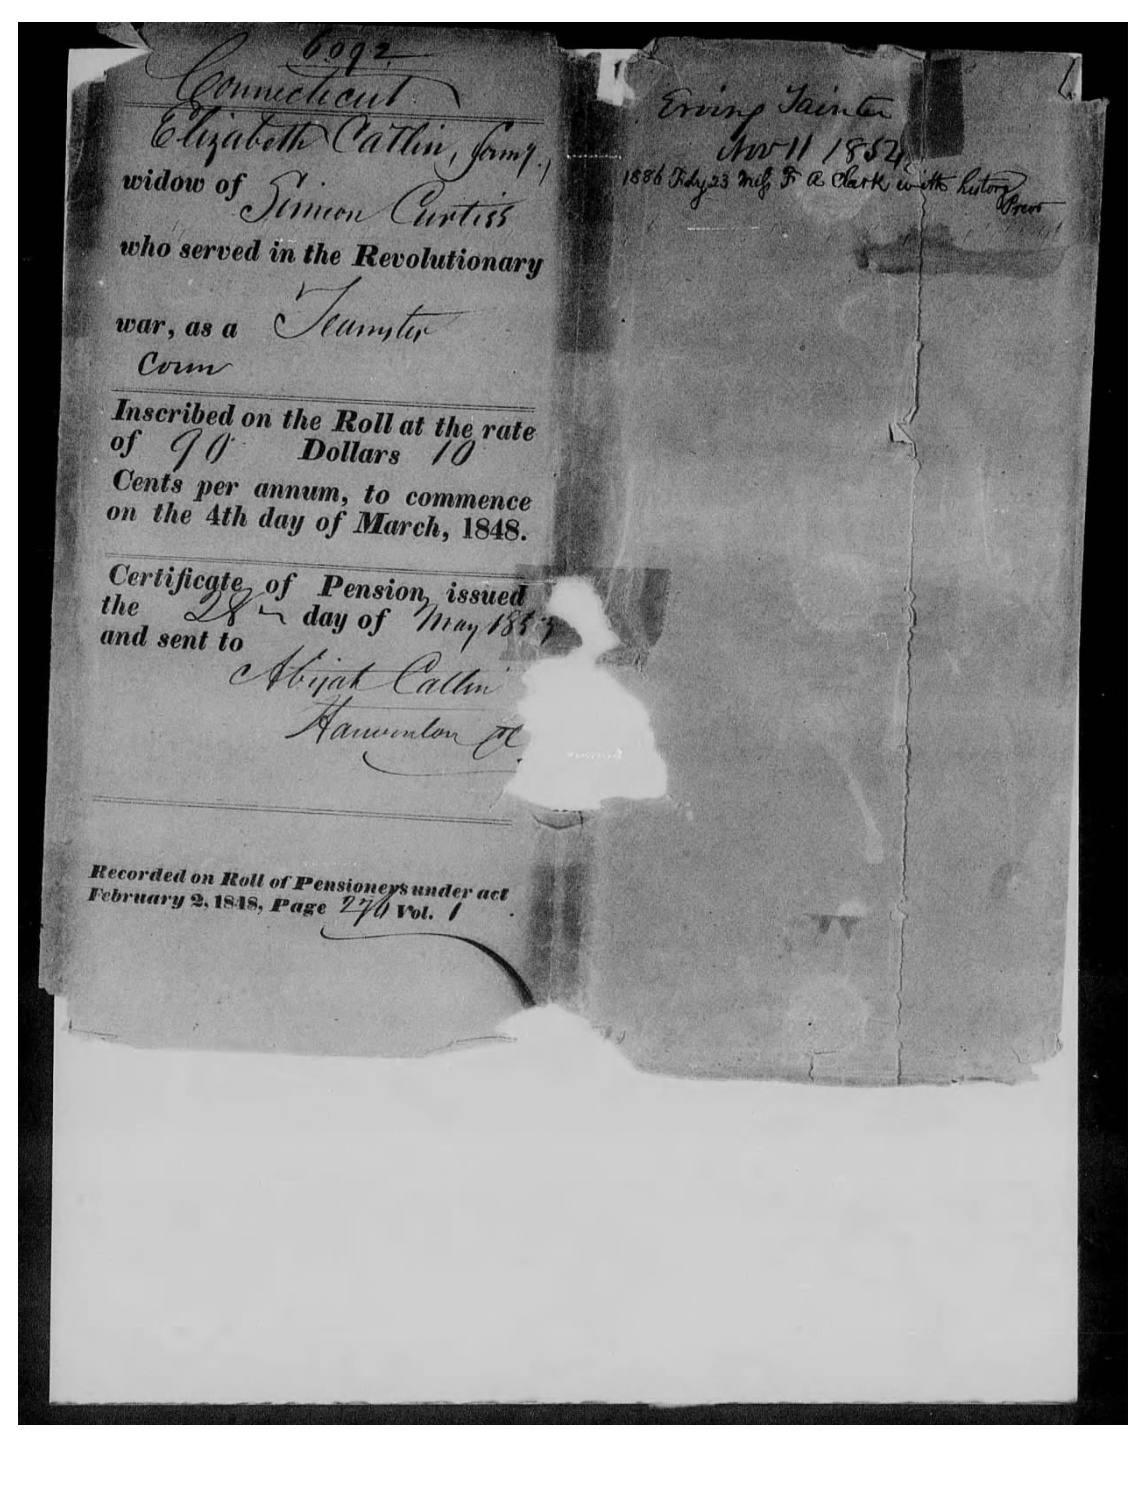 6092
Connecticut
Elizabeth Catlin, form'y.,
widow of
Simeon Curtiss
who served in the Revolutionary
war, as a Teamster
Conn
Inscribed on the Roll at the rate
of 90 Dollars 10
Cents per annum, to commence
on the 4th day of March, 1848.
Certificate of Pension issued
the 28 day of May 1853
and sent to
Abijah Catlin
Harwinton Ct
Recorded on Roll of Pensioners under act
February 2, 1848, Page Vol. 1
Erving Tainter
Nov 11 1854
1886 Feby 23 Miss F A Clark with history